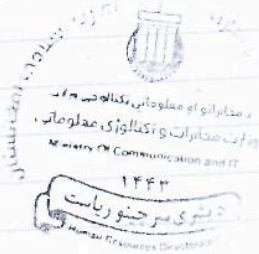 د مخابراتو او معلوماتي ټکنالوجۍ وزارت
وزارت مخابرات و تکنالوژی معلوماتی
Ministry Of Communication and IT
۱۴۴۳
د بشري سرچینو ریاست
Human Resources Directorate